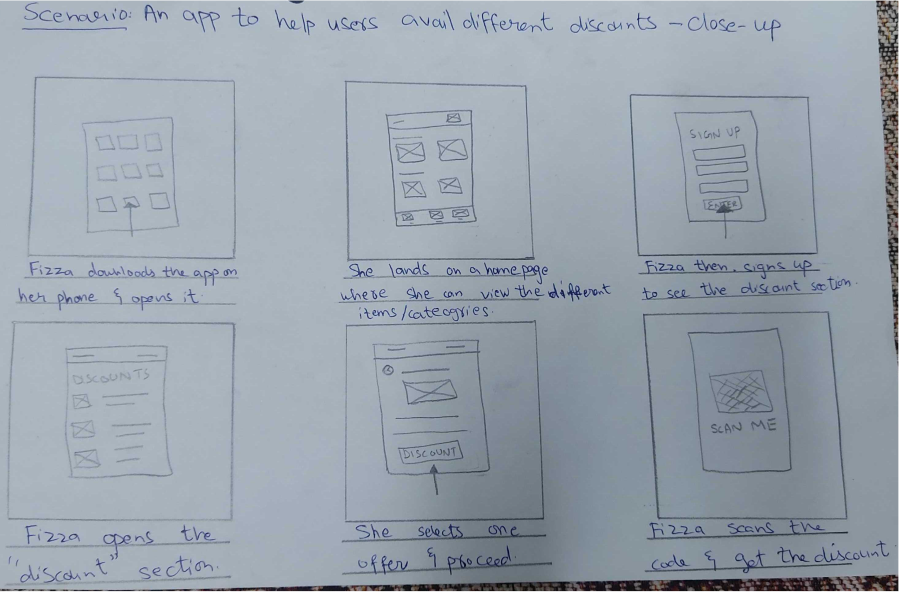 Scenario: An app to help users avail different discounts - Close-up
Fizza downloads the app on
her phone & opens it.
She lands on a homepage
where she can view the different
items/cateogries.
SIGN UP
ENTER
Fizza then signs up
to see the discount section.
DISCOUNTS
Fizza opens the
"discount" section.
DISCOUNT
She selects one
offer & proceed
SCAN ME
Fizza scans the
code & get the discount.